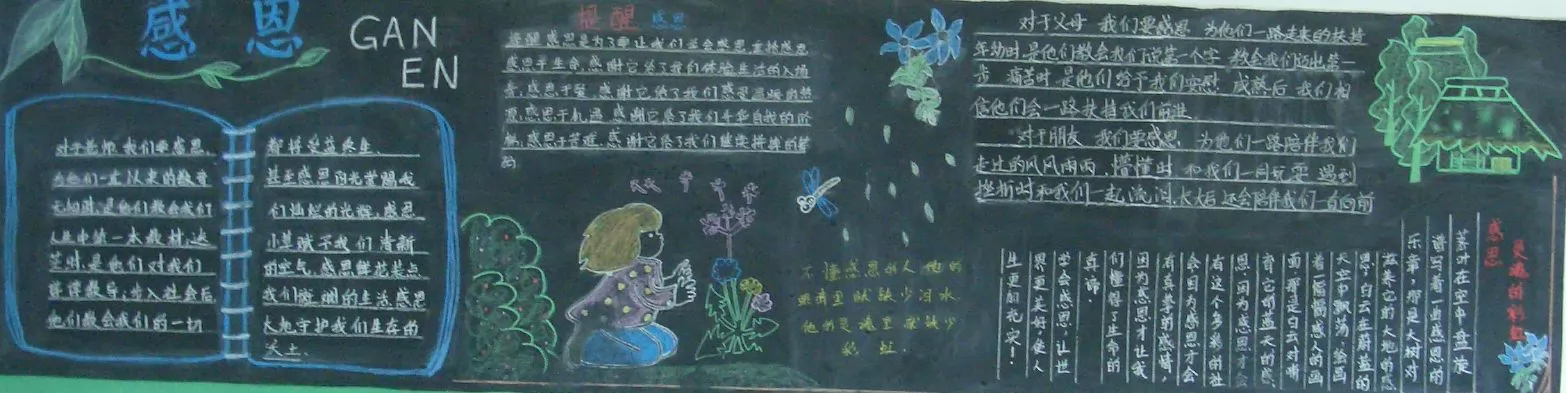 感恩
GAN
EN
对于老师,我们要感恩,
为他们一直以来的教育
无知时,是他们教会我们
人生中第一本教材,迷
茫时,是他们对我们
谆谆教导,步入社会后,
他们教会我们的一切
都将受益终生。
甚至感恩阳光赏赐我
们灿烂的光辉,感恩
小草赋予我们清新
的空气,感恩鲜花装点
我们斑斓的生活,感恩
大地守护我们生存的
天土。
提醒感恩
提醒感恩是为了要让我们学会感恩,
感恩于生命,感谢它给了我们体验生活的入场
券,感恩于爱,感谢它给了我们感受温暖的热
源,感恩于机遇,感谢它给了我们升华自我的阶
梯,感恩于苦难,感谢它给了我们继续拼搏的
不懂感恩的人他的
眼睛里就缺少泪水
他的灵魂里就缺少
彩虹.
对于父母 我们要感恩 为他们一路走来的扶持
年幼时 是他们教会我们说第一个字 教会我们迈出第一
步 痛苦时 是他们给予我们安慰 成熟后 我们相
信他们会一路扶持我们前进
对于朋友 我们要感恩 为他们一路陪伴我们
走过的风风雨雨,懵懂时 和我们一同玩耍 遇到
挫折时和我们一起流泪,长大后 还会陪伴我们一直向前
灵魂的彩虹
感恩
落叶在空中盘旋
谱写着一曲感恩的
乐章,那是大树对
滋养它的大地的感
恩;白云在蔚蓝的
天空中飘荡,绘画
着一幅幅感人的画
面,那是白云对哺
育它的蓝天的感
恩。因为感恩才会
有这个多彩的社
会因为感恩才会
有真挚的感情,
因为感恩才让我
们懂得了生命的
真谛.
学会感恩,让世
界更美好,使人
生更加充实!